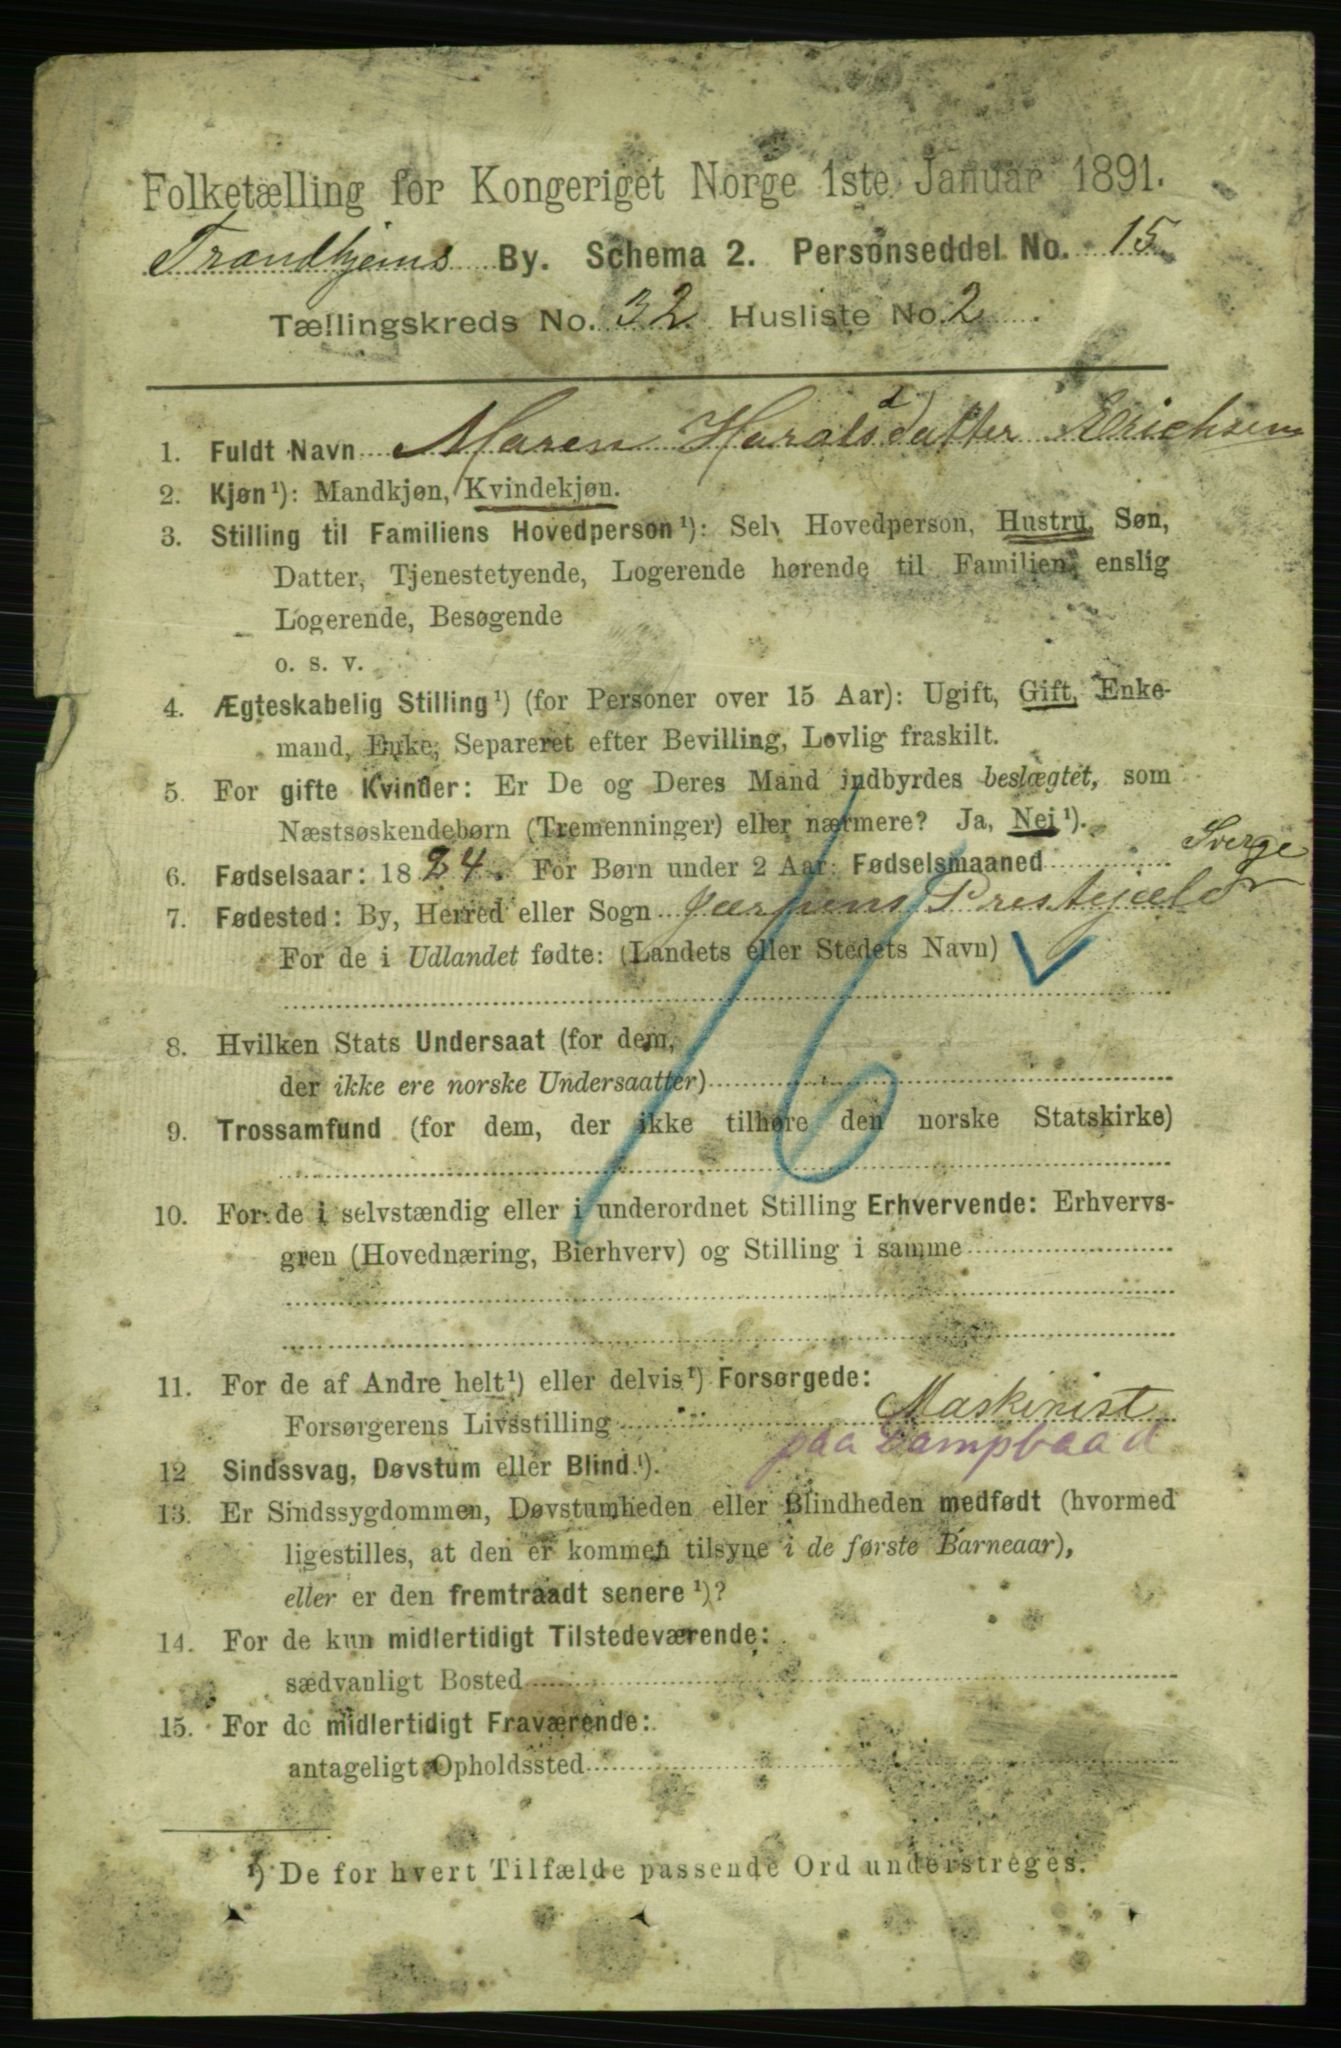 Folketælling for Kongeriget Norge 1ste Januar 1891.
Trondhjems By. Schema 2. Personseddel No. 15
Tællingskreds No. 32 Husliste No. 2
1. Fuldt Navn Maren Haralsdatter Erichsen
d
2. Kjøn ¹): Mandkjøn, Kvindekjøn.
3. Stilling til Familiens Hovedperson ¹): Selv Hovedperson, Hustru, Søn,
Datter, Tjenestetyende, Logerende hørende til Familien, enslig
Logerende, Besøgende
o. s. v.
4. Ægteskabelig Stilling ¹) (for Personer over 15 Aar): Ugift, Gift, Enke-
mand, Enke, Separeret efter Bevilling, Lovlig fraskilt.
5. For gifte Kvinder: Er De og Deres Mand indbyrdes beslægtet, som
Næstsøskendebørn (Tremenninger) eller nærmere? Ja, Nei ¹).
6. Fødselsaar: 1824. For Børn under 2 Aar: Fødselsmaaned
Sverge
7. Fødested: By, Herred eller Sogn Jærpens Prestegjeld
For de i Udlandet fødte: (Landets eller Stedets Navn)
16
8. Hvilken Stats Undersaat (for dem,
der ikke ere norske Undersaatter)
9. Trossamfund (for dem, der ikke tilhøre den norske Statskirke)
10. For de i selvstændig eller i underordnet Stilling Erhvervende: Erhvervs-
gren (Hovednæring, Bierhverv) og Stilling i samme
11. For de af Andre helt ¹) eller delvis ¹) Forsørgede:
Forsørgerens Livsstilling Maskinist
paa Dampbaad
12 Sindssvag, Døvstum eller Blind ¹).
13. Er Sindssygdommen, Døvstumheden eller Blindheden medfødt (hvormed
ligestilles, at den er kommen tilsyne i de første Barneaar),
eller er den fremtraadt senere ¹)?
14. For de kun midlertidigt Tilstedeværende:
sædvanligt Bosted
15. For de midlertidigt Fraværende:
antageligt Opholdssted
¹) De for hvert Tilfælde passende Ord understreges.